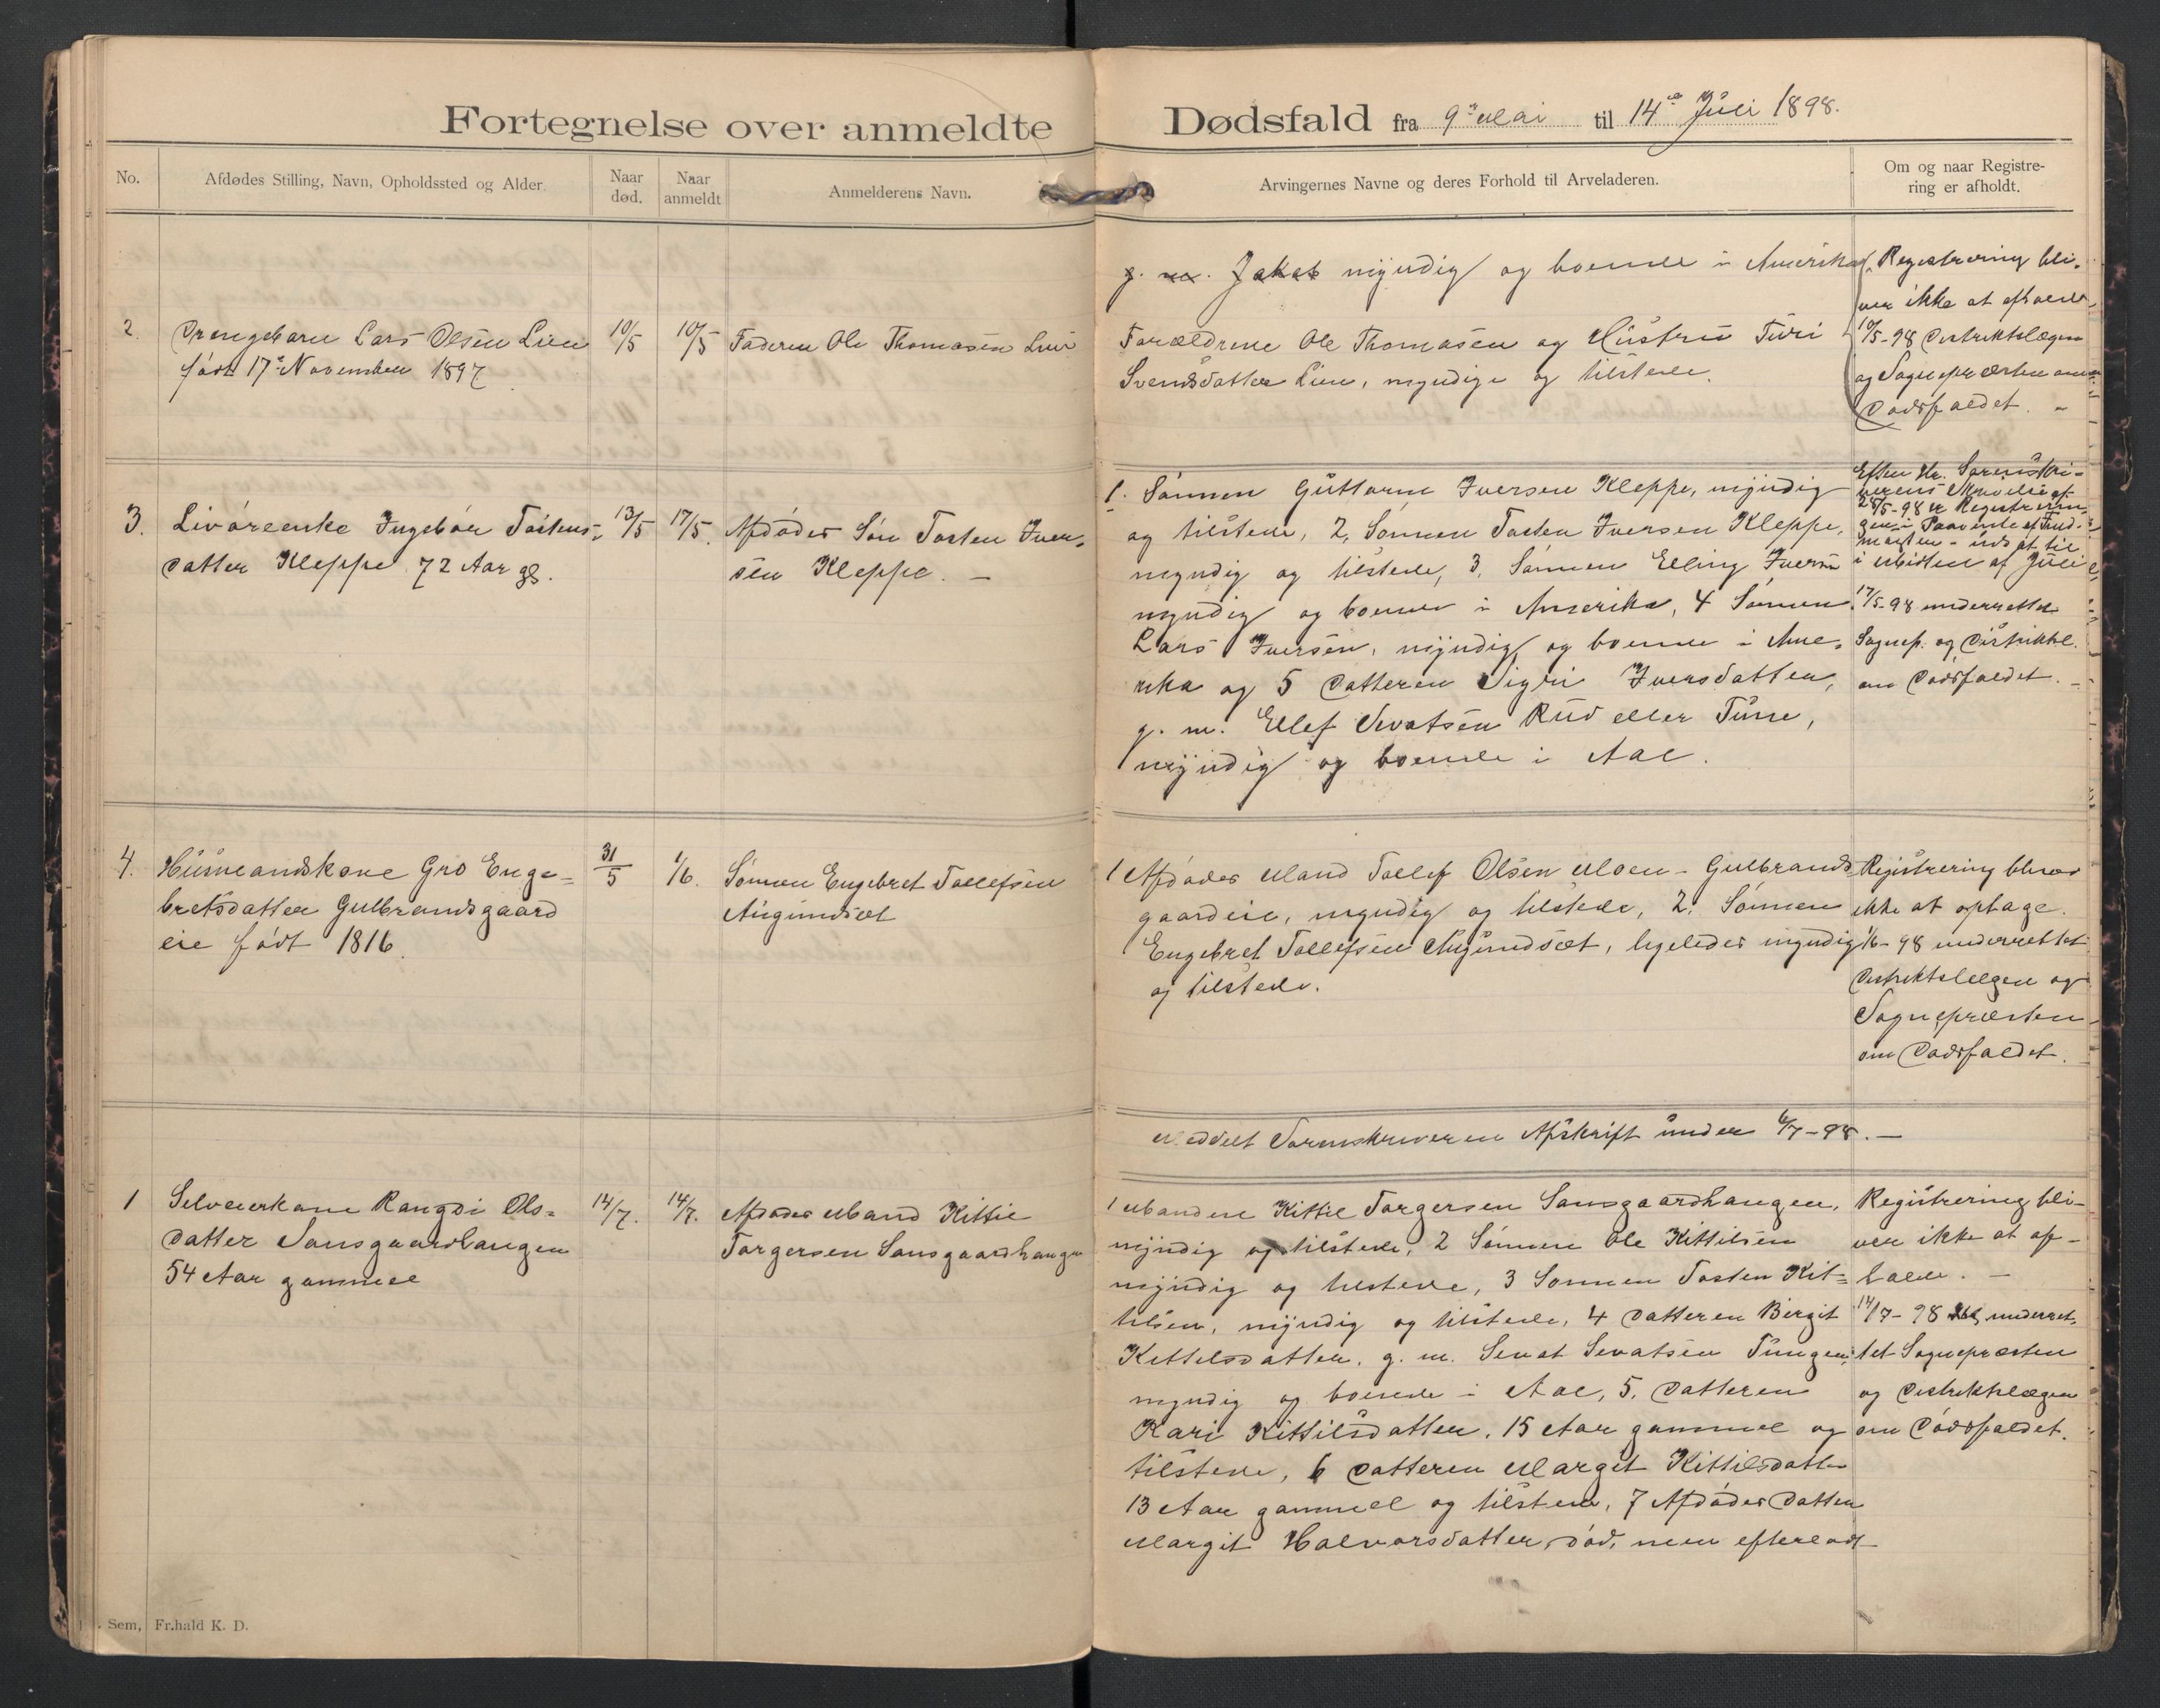 Fortegnelse over anmeldte Dødsfald fra 9de Mai til 14de Juli 1898.
No.
Afdødes Stilling, Navn, Opholdssted og Alder.
Naar død.
Naar anmeldt
Anmelderens Navn.
Arvingernes Navne og deres Forhold til Arveladeren.
Om og naar Registrering er afholdt.
g. m. Jakob myndig og boende i Amerika
2.
Drengebarn Lars Olsen Lien
født 17de November 1897
10/5
10/5
Faderen Ole Thomasen Lien
Forældrene Ole Thomasen og Hustru Turi
Svendsdatter Lien, myndige og tilstede.
Registrering bli-
ver ikke at afholde
10/5-98 Distriktslægen
og Sognepræsten om
Dødsfaldet. "
3.
Livørenke Ingebør Tostens-
datter Kleppe 72 Aar gl.
13/5
17/5.
Afdødes Søn Tosten Iver-
sen Kleppe. —
1. Sønnen Guttorm Iversen Kleppe, myndig
og tilstede, 2, Sønnen Tosten Iversen Kleppe,
myndig og tilstede, 3, Sønnen Elling Iversen
myndig og boende i Amerika, 4 Sønnen
Lars Iversen, myndig og boende i Ame-
rika og 5 Datteren Sigri Iversdatter,
g. m. Ellef Sevatsen Rud eller Tune,
myndig og boende i Aal.
Efter Hr. Sorenskri-
verens Skrivelse af
25/5-98 er Registrerin-
gen i Paavente af
udsat til
i Midten af Juli
17/5-98 underrettet
Sognep. og Distriktsl.
om Dødsfaldet. —
4.
Husmandskone Gro Enge-
bretsdatter Gulbrandsgaard
eie født 1816.
31/5
1/6.
Sønnen Engebret Tollefsen
Augundset
1 Afdødes Mand Tollef Olsen Moen - Gulbrands
gaardeie, myndig og tilstede, 2, Sønnen
Engebret Tollefsen Augundsæt, ligeledes myndig
og tilstede.
Registrering bliver
ikke at optage.
1/6-98 underrettet
Distriktslægen og
Sognepræsten
om Dødsfaldet.
Meddelt Sorenskriveren Afskrift under 6/7-98. —
1
Selveierkone Rangdi Ols-
datter Sonsgaardhaugen
54 Aar gammel
14/7.
14/7.
Afdødes Mand Kittil
Torgersen Sonsgaardhaugen
1 Manden Kittil Torgersen Sonsgaardhaugen,
myndig og tilstede, 2 Sønnen Ole Kittilsen
myndig og tilstede, 3 Sønnen Tosten Kit-
tilsen, myndig og tilstede, 4 Datteren Birgit
Kittelsdatter, g. m. Sevat Sevatsen Tungen,
myndig og boende i Aal, 5, Datteren
Kari Kittilsdatter, 15 Aar gammel og
tilstede, 6 Datteren Margit Kittilsdatter
13 Aar gammel og tilstede, 7 Afdødes Datter
Margit Halvorsdatter, død, men efterladt
Registrering bli-
ver ikke at af-
holde. —
14/7-98 underret-
tet Sognepræsten
og Distriktslægen
om Dødsfaldet.
. Sem, Fr.hald K. D.